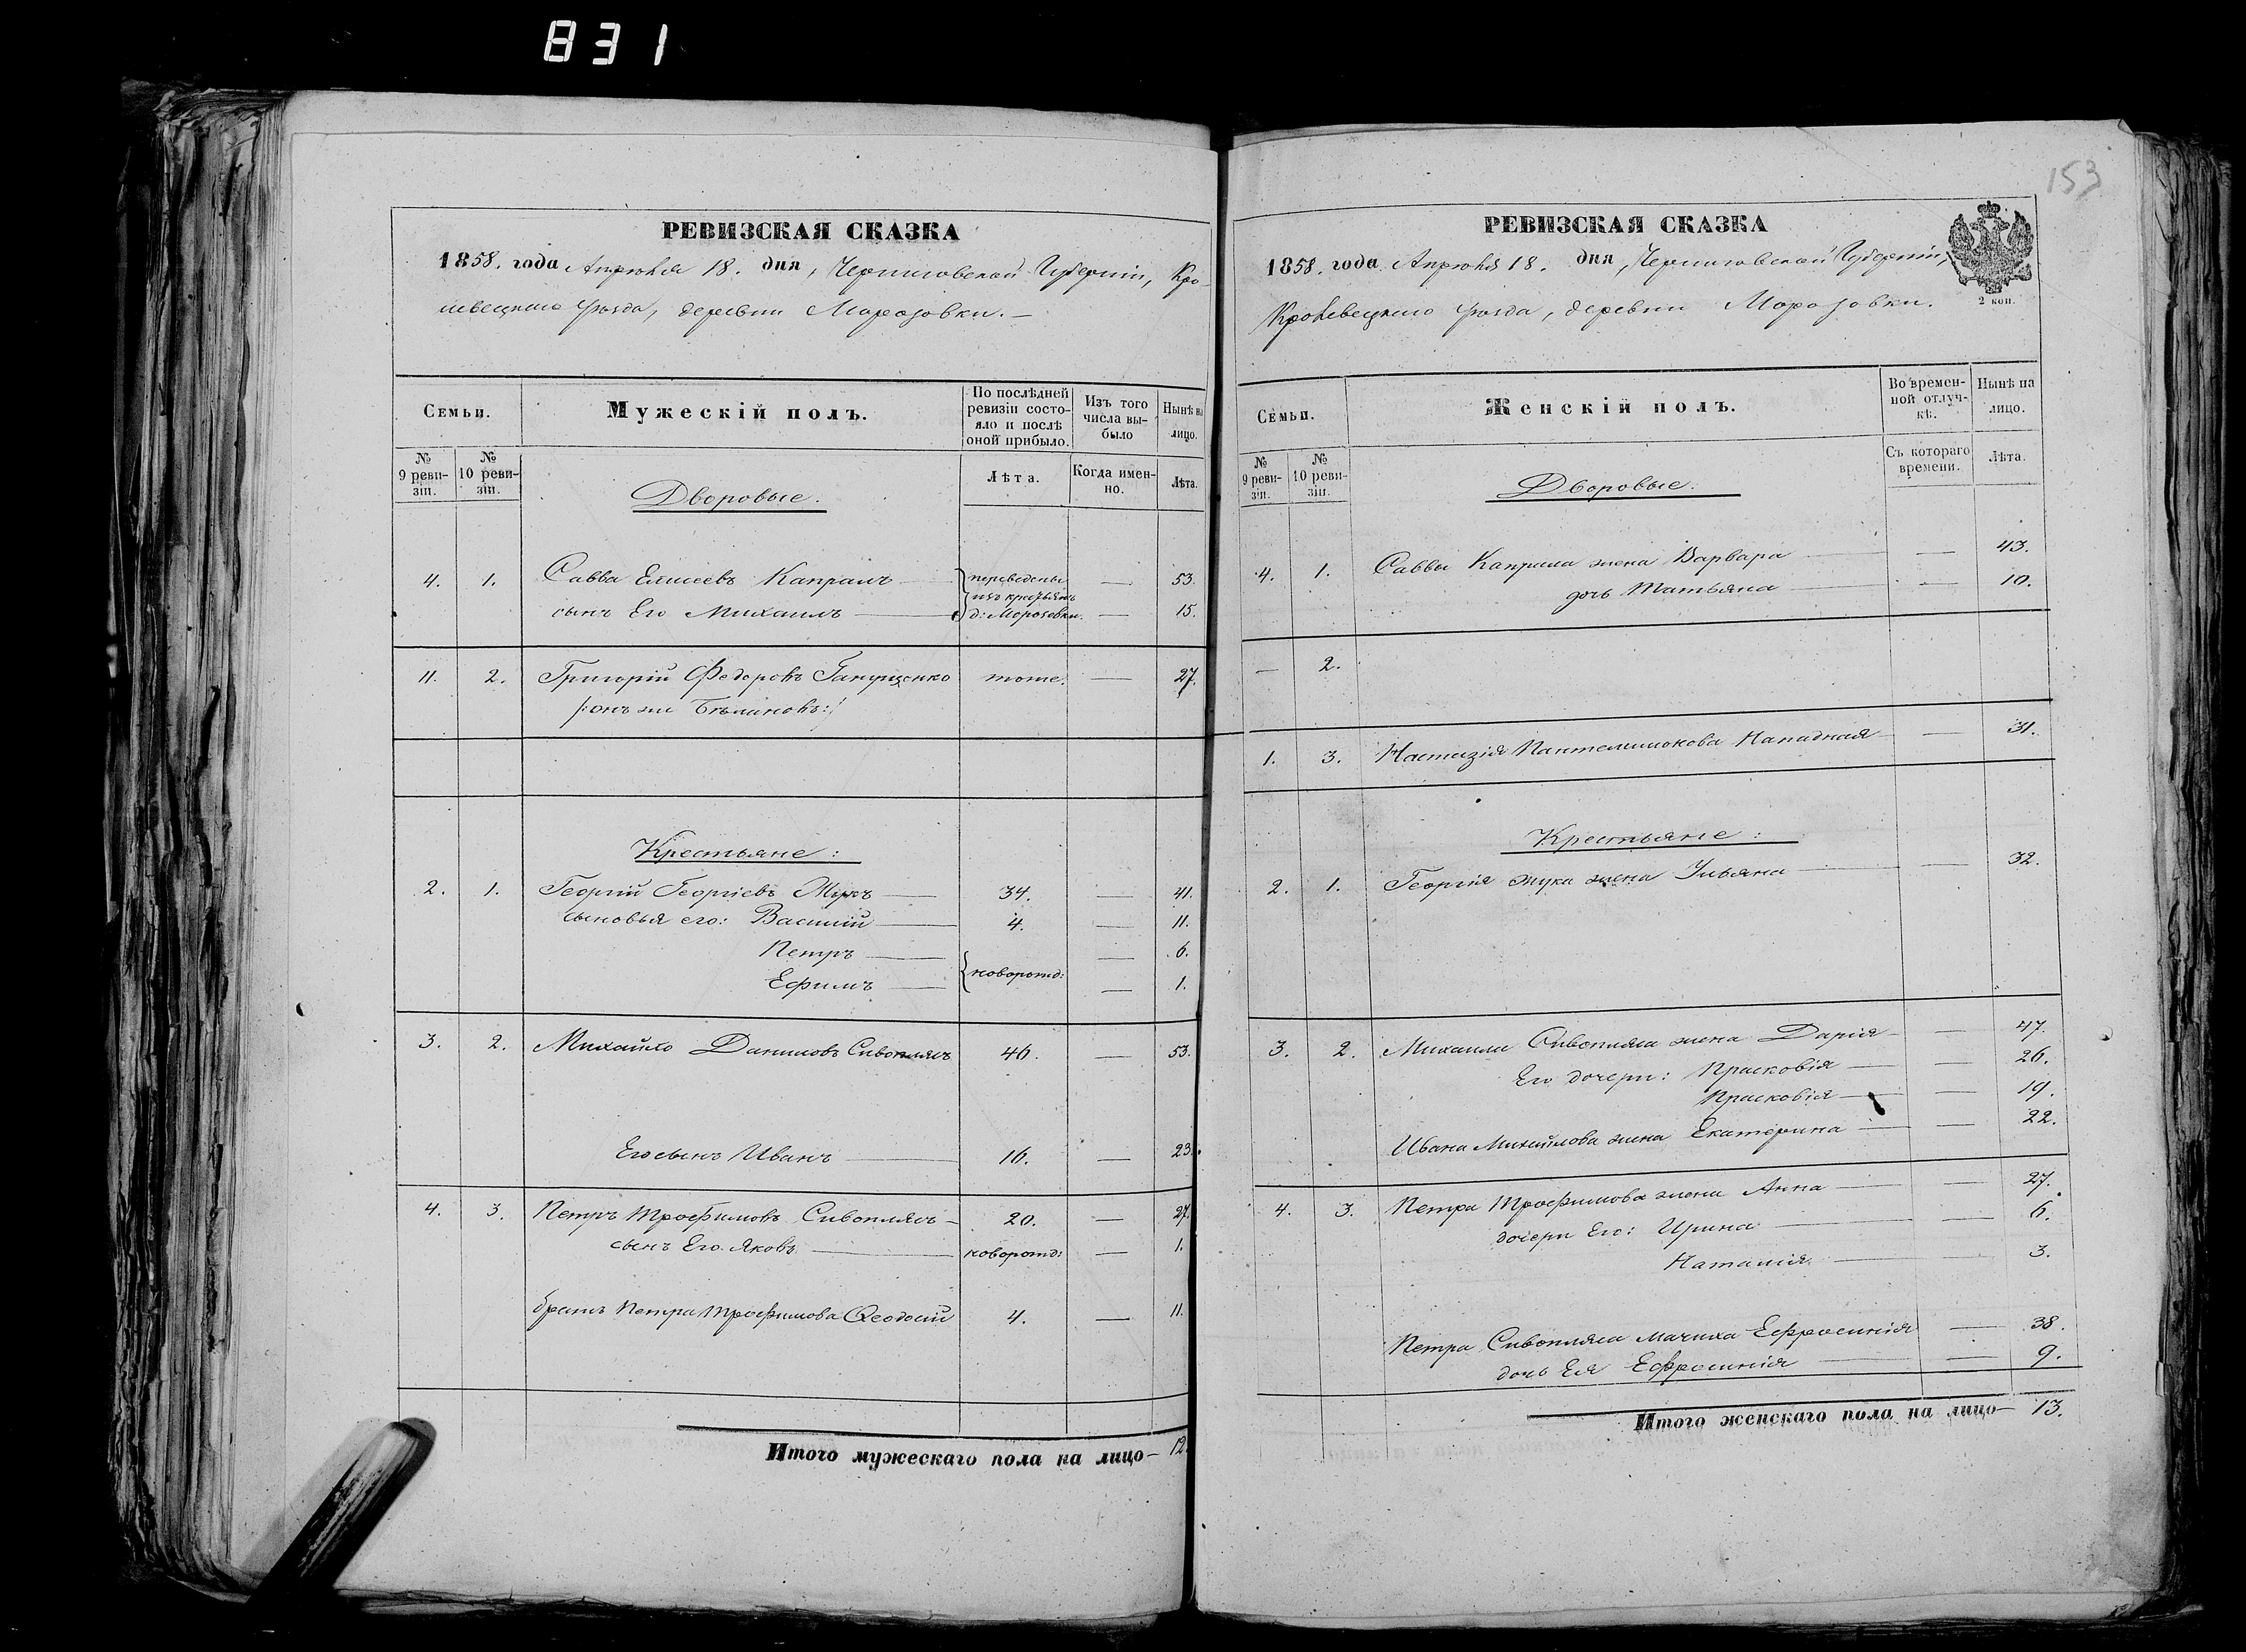 831
153
РЕВИЗСКАЯ СКАЗКА
1858. года Апрѣля 18. дня, Черниговской Губерніи, Кро-
левецкаго уѣзда, деревни Морозовки.
Семьи.
Мужескій полъ.
По послѣдней ревизіи состояло и послѣ оной прибыло.
Изъ того числа выбыло
Нынѣ на лицо.
№ 9 ревизіи.
№ 10 ревизіи.
Лѣта.
Когда именно.
Лѣта.
Дворовые.
4. 1. Савва Елисеевъ Капралъ — переведены — 53.
изъ крестьянъ
сынъ Его Михаилъ — д: Морозовки. — 15.
11. 2. Григорій Федоровъ тоже. — 27.
/:онъ же
Крестьяне:
2. 1. Георгій Георгіевъ Жукъ — 34. — 41.
сыновья его: Василій — 4. — 11.
Петръ — — 6.
новорожд:
Ефимъ — — 1.
3. 2. Михайло Даниловъ Сивоплясъ 46. — 53.
Его сынъ Иванъ — 16. — 23.
4. 3. Петръ Трофимовъ Сивоплясъ — 20. — 27.
сынъ Его Яковъ — новорожд: — 1.
братъ Петра Трофимова Ѳеодосій 4. — 11.
Итого мужескаго пола на лицо — 12.
РЕВИЗСКАЯ СКАЗКА
1858. года Апрѣля 18. дня, Черниговской Губерніи,
2 коп.
Кролевецкаго уѣзда, деревни Морозовки.
Семьи.
Женскій полъ.
Во временной отлучкѣ.
Нынѣ на лицо.
№ 9 ревизіи.
№ 10 ревизіи.
Съ котораго времени.
Лѣта.
Дворовые:
4. 1. Саввы Капрала жена Варвара — — 43.
дочь Татьяна — — 10.
— 2.
1. 3. Настазія Пантелимонова — 31.
Крестьяне:
2. 1. Георгія Жука жена Ульяна — — 32.
3. 2. Михаила Сивопляса жена Дарія — — 47.
Его дочери: Прасковія — — 26.
Прасковія — — 19.
Ивана Михайлова жена Екатерина — — 22.
4. 3. Петра Трофимова жена Анна — — 27.
дочери Его: Ирина — — 6.
Наталія — — 3.
Петра Сивопляса мачиха Ефросинія — 38.
дочь Ея Ефросинія — — 9.
Итого женскаго пола на лицо — 13.